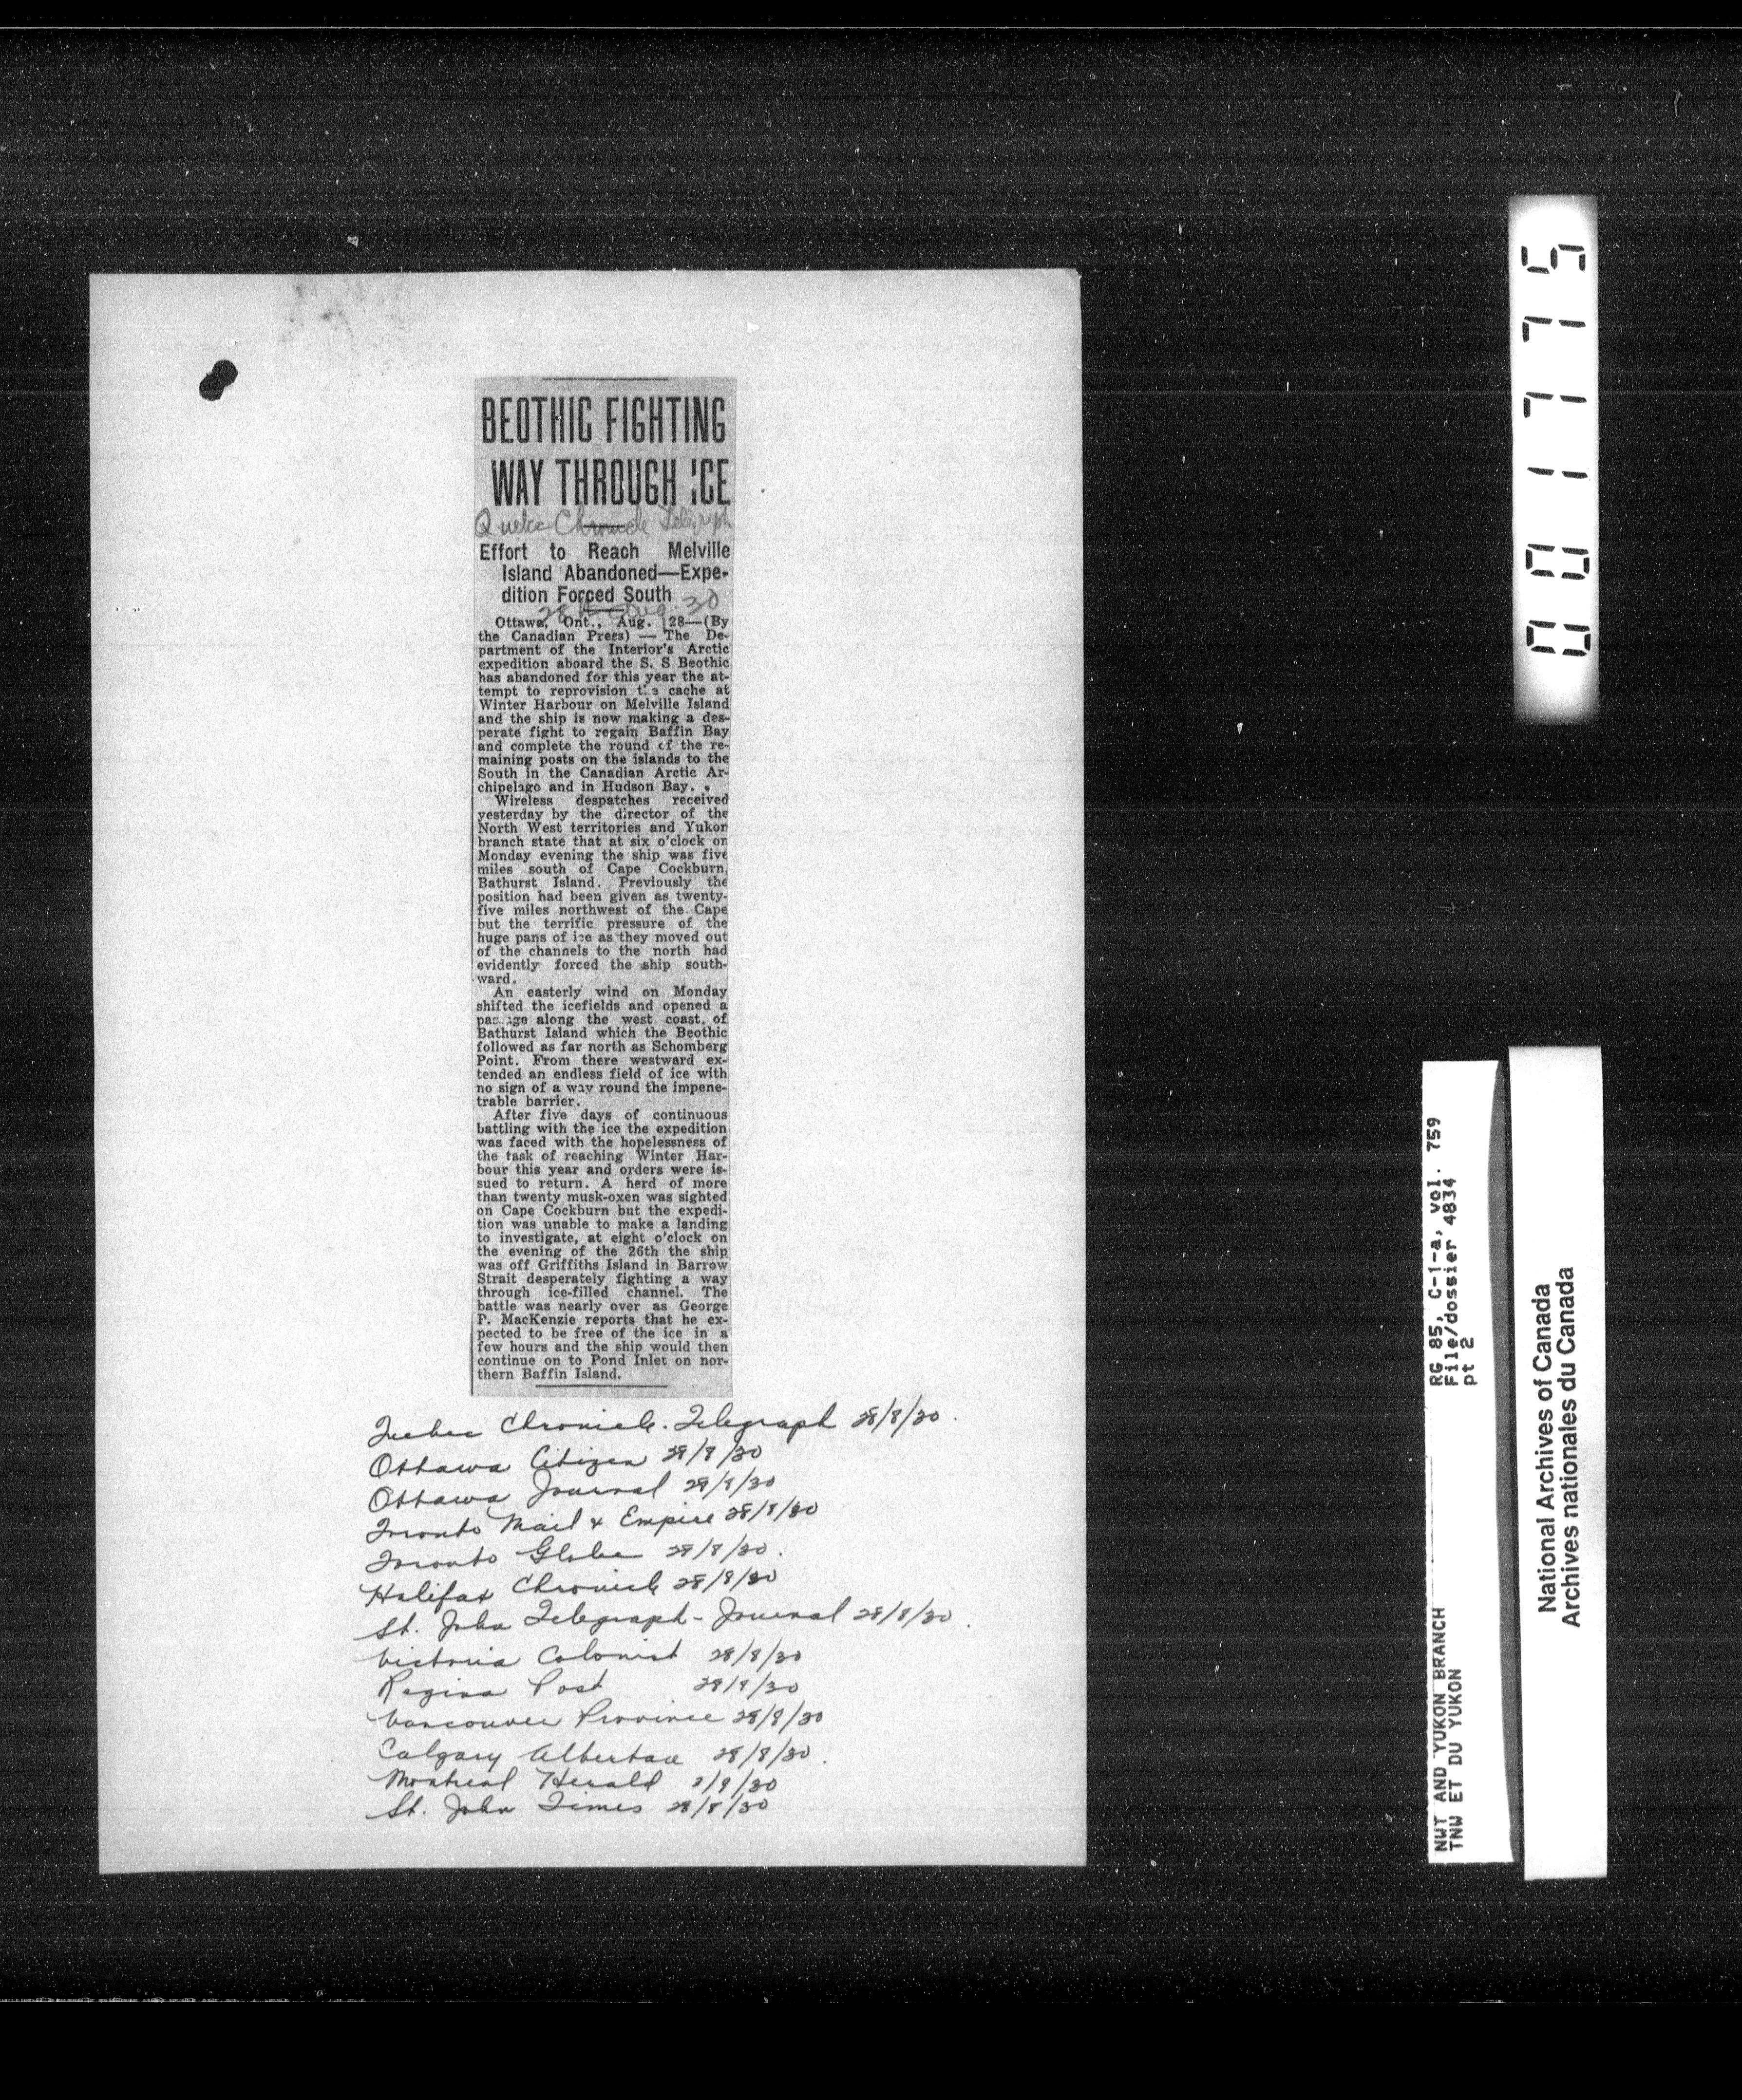 BEOTHIC FIGHTING
WAY THROUGH ICE
Quebec Chronicle Telegraph
Effort to Reach Melville
Island Abandoned—Expe-
dition Forced South
28th Aug. 30
Ottawa, Ont., Aug. 28—(By
the Canadian Press) — The De-
partment of the Interior's Arctic
expedition aboard the S. S Beothic
has abandoned for this year the at-
tempt to reprovision the cache at
Winter Harbour on Melville Island
and the ship is now making a des-
perate fight to regain Baffin Bay
and complete the round of the re-
maining posts on the islands to the
South in the Canadian Arctic Ar-
chipelago and in Hudson Bay.
Wireless despatches received
yesterday by the director of the
North West territories and Yukon
branch state that at six o'clock on
Monday evening the ship was five
miles south of Cape Cockburn,
Bathurst Island. Previously the
position had been given as twenty-
five miles northwest of the Cape
but the terrific pressure of the
huge pans of ice as they moved out
of the channels to the north had
evidently forced the ship south-
ward.
An easterly wind on Monday
shifted the icefields and opened a
passage along the west coast of
Bathurst Island which the Beothic
followed as far north as Schomberg
Point. From there westward ex-
tended an endless field of ice with
no sign of a way round the impene-
trable barrier.
After five days of continuous
battling with the ice the expedition
was faced with the hopelessness of
the task of reaching Winter Har-
bour this year and orders were is-
sued to return. A herd of more
than twenty musk-oxen was sighted
on Cape Cockburn but the expedi-
tion was unable to make a landing
to investigate, at eight o'clock on
the evening of the 26th the ship
was off Griffiths Island in Barrow
Strait desperately fighting a way
through ice-filled channel. The
battle was nearly over as George
P. MacKenzie reports that he ex-
pected to be free of the ice in a
few hours and the ship would then
continue on to Pond Inlet on nor-
thern Baffin Island.
Quebec Chronicle-Telegraph 28/8/30.
Ottawa Citizen 28/8/30
Ottawa Journal 28/8/30
Toronto Mail & Empire 28/8/30
Toronto Globe 28/8/30.
Halifax Chronicle 28/8/30
St. John Telegraph-Journal 28/8/30.
Victoria Colonist 28/8/30
Regina Post 28/8/30
Vancouver Province 28/8/30
Calgary Albertan 28/8/30.
Montreal Herald 2/9/30
St. John Times 28/8/30
001775
RG 85, C-1-a, vol. 759
File/dossier 4834
pt 2
NWT AND YUKON BRANCH
TNW ET DU YUKON
National Archives of Canada
Archives nationales du Canada